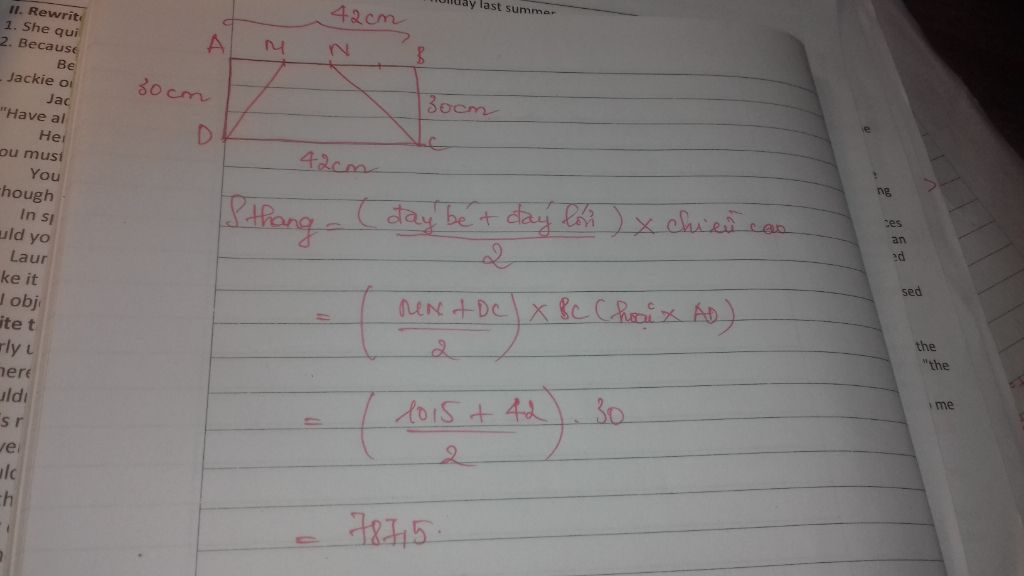 II. Rewrit
1. She qui
2. Because
Be
Jackie o
Jac
"Have al
He
ou must
You
hough
In s
uld yo
Laur
ke it
l obj
ite t
rly
here
uld
s r
holiday last summer
42cm
A M N B
30cm
30cm
D C
42cm
S thang = ( đáy bé + đáy lớn ) x chiều cao
2
= ( MN + DC ) x BC ( hoặc x AD )
2
= ( 10,5 + 42 ) . 30
2
= 787,5.
e
ng
ces
an
ed
sed
the
"the
me